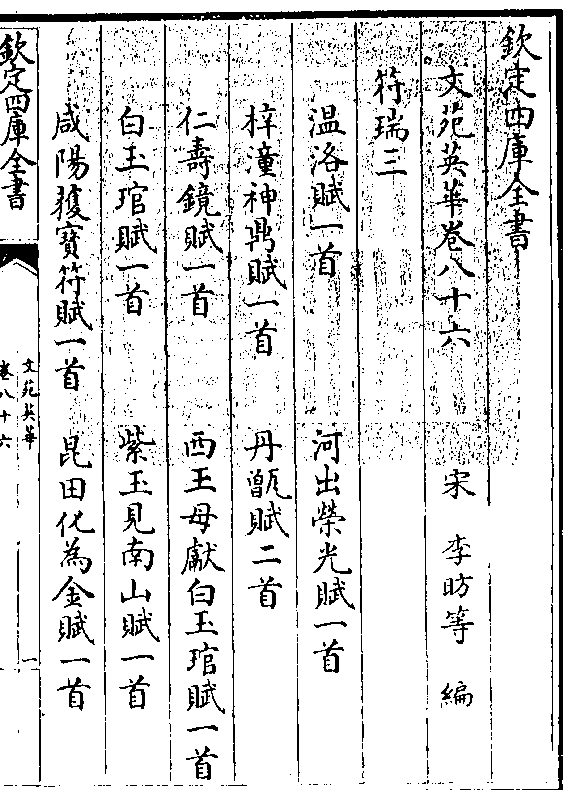 欽定四庫全書
文苑英華卷八十六
宋 李昉等 編
符瑞三
温洛賦一首 河出榮光賦一首
梓潼神鼎賦一首 丹甑賦二首
仁壽鏡賦一首 西王母獻白玉琯賦一首
白玉琯賦一首 紫玉見南山賦一首
咸陽獲寳符賦一首 昆田化為金賦一首
欽定四庫全書
文苑英華
卷八十六
一